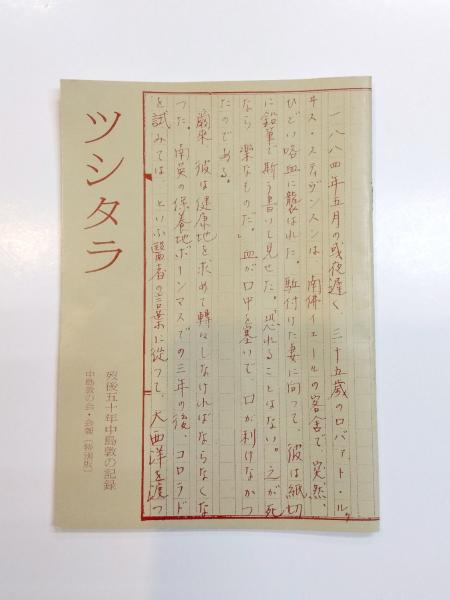 一八八四年五月の或夜遅く、三十五歳のロバァト・ル
ヰス・スティヴンスンは、南佛イエールの客舎で、突然、
ひどい喀血に襲はれた。駈付けた妻に向って、彼は紙切
に鉛筆で斯う書いて見せた。「恐れることはない。之が死
なら、楽なものだ。」血が口中を塞いで、口が利けなかつ
たのである。
爾来、彼は健康地を求めて轉々しなければならなくな
つた。南英の保養地ボーンマスでの三年の後、コロラド
を試みては、といふ醫者の言葉に從つて、大西洋を渡つ
ツシタラ
歿後五十年中島敦の記録
中島敦の会・会報［特別版］